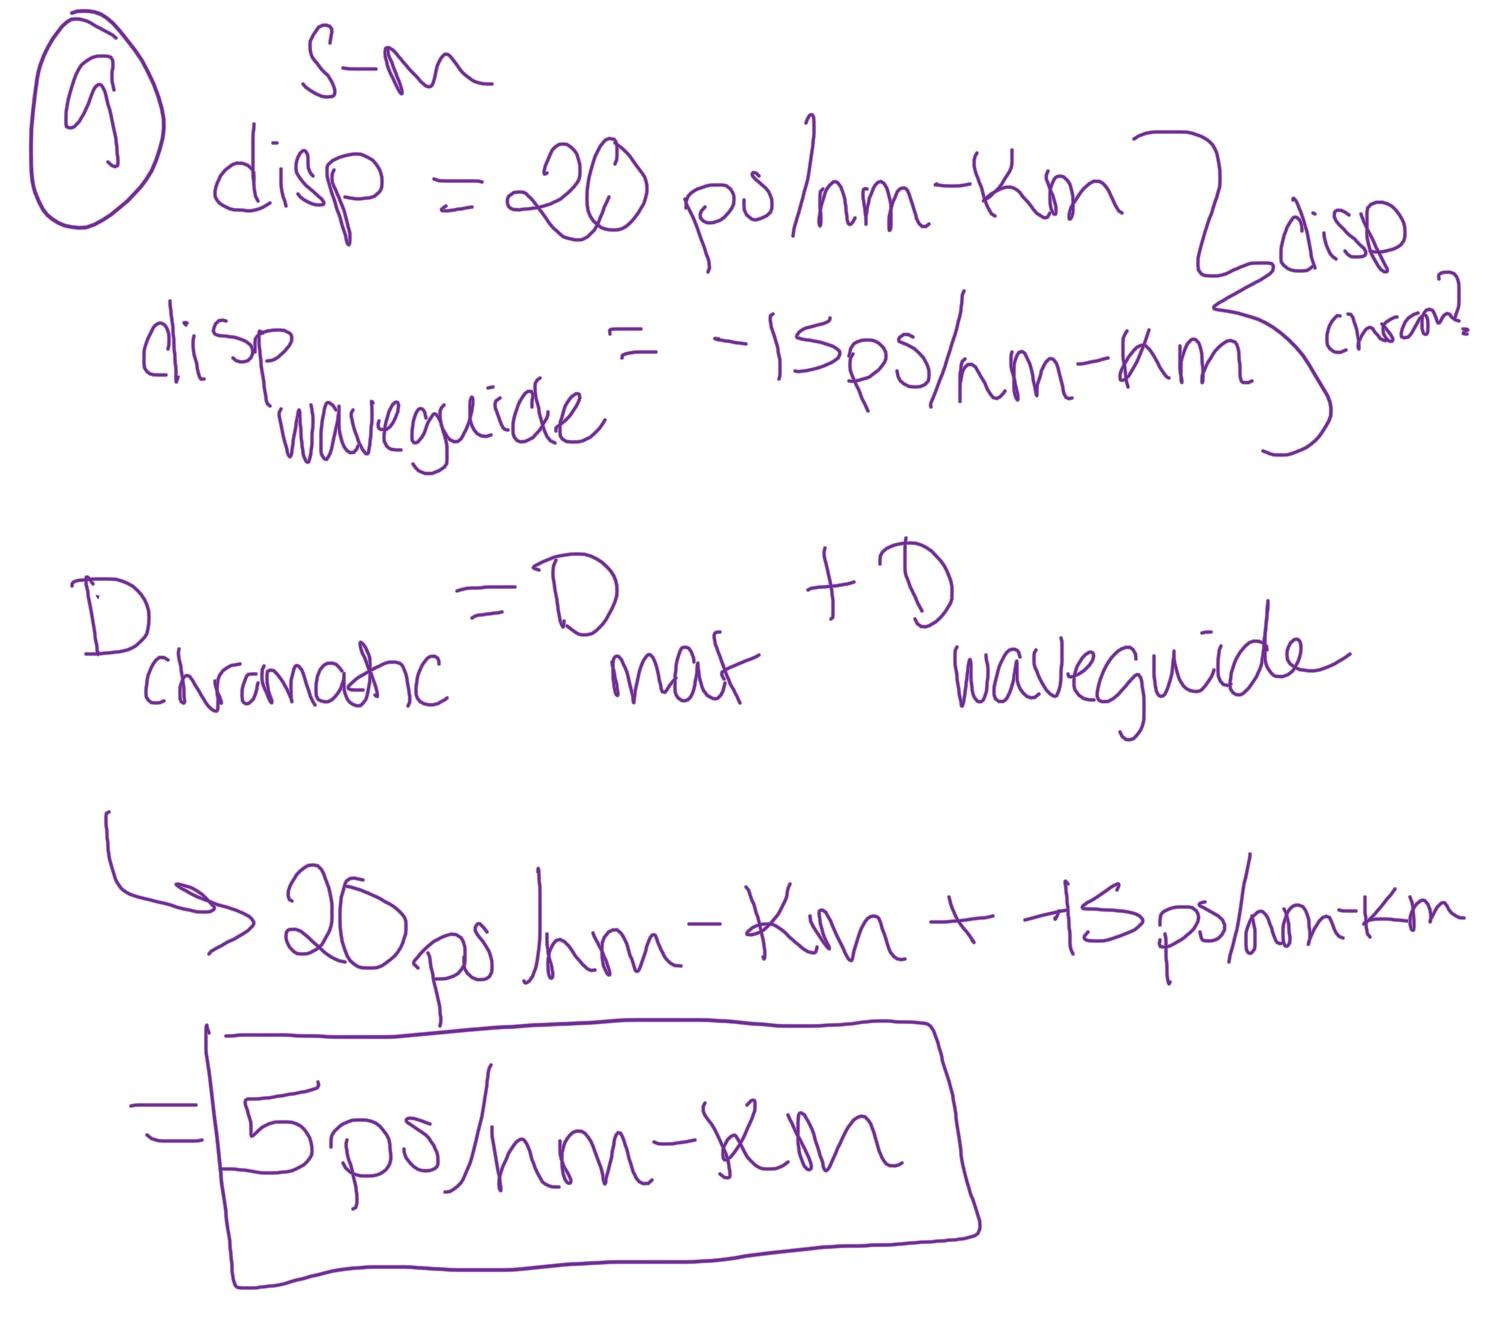 9
S-M
disp = 20 ps/nm-Km
disp waveguide = -15ps/nm-Km
disp
chrom?
D chromatic = D mat + D waveguide
↳ 20ps/nm-Km + -15ps/nm-Km
= 5ps/nm-Km